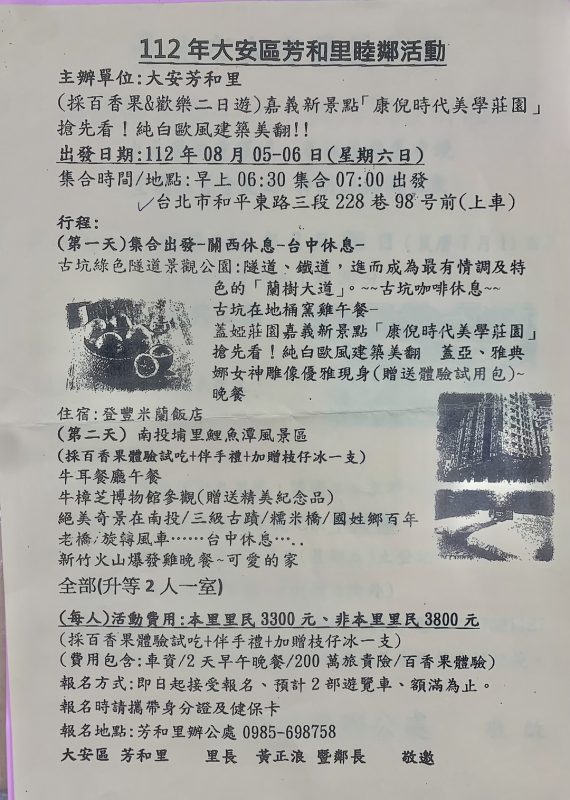 112年大安區芳和里睦鄰活動
主辦單位:大安芳和里
(採百香果&歡樂二日遊)嘉義新景點「康倪時代美學莊園」
搶先看!純白歐風建築美翻!!
出發日期:112年08月05-06日(星期六日)
集合時間/地點:早上06:30集合07:00出發
台北市和平東路三段228巷98号前(上車)
行程:
(第一天)集合出發-關西休息-台中休息-
古坑綠色隧道景觀公園:隧道、鐵道,進而成為最有情調及特
色的「蘭樹大道」。~~古坑咖啡休息~~
古坑在地桶窯雞午餐-
蓋婭莊園嘉義新景點「康倪時代美學莊園」
搶先看!純白歐風建築美翻 蓋亞、雅典
娜女神雕像優雅現身(贈送體驗試用包)~
晚餐
住宿:登豐米蘭飯店
(第二天) 南投埔里鯉魚潭風景區
(採百香果體驗試吃+伴手禮+加贈枝仔冰一支)
牛耳餐廳午餐
牛樟芝博物館參觀(贈送精美紀念品)
絕美奇景在南投/三級古蹟/糯米橋/國姓鄉百年
老橋/旋轉風車⋯⋯台中休息⋯..
新竹火山爆發雞晚餐~可愛的家
全部(升等2人一室)
(每人)活動費用:本里里民3300元、非本里里民3800元
(採百香果體驗試吃+伴手禮+加贈枝仔冰一支)
(費用包含:車資/2天早午晚餐/200萬旅責險/百香果體驗)
報名方式:即日起接受報名、預計2部遊覽車、額滿為止。
報名時請攜帶身分證及健保卡
報名地點:芳和里辦公處 0985-698758
大安區 芳和里 里長 黃正浪 暨鄰長 敬邀